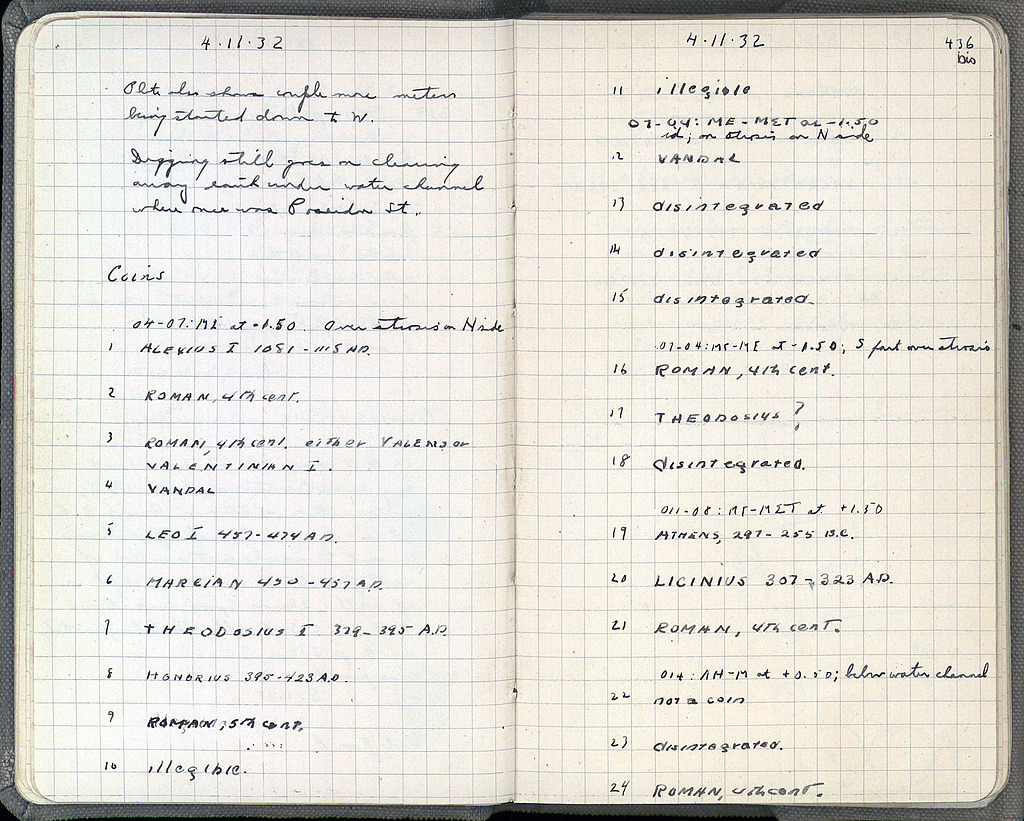 4·11·32
also shows couple more meters
being started down to W.
Digging still goes on clearing
away earth under water channel
where once was Poseidon St.
Coins
04-07: ME at -1.50. Over stereo on N side
1 ALEXIUS I 1081-1118 AD.
2 ROMAN, 4th cent.
3 ROMAN, 4th cent. either VALENS or
VALENTINIAN I.
4 VANDAL
5 LEO I 457-474 A.D.
6 MARCIAN 450-457 A.D.
7 THEODOSIUS I 379-395 A.D.
8 HONORIUS 395-423 A.D.
9 ROMAN, 5th cent.
10 illegible.
4·11·32
436
bis
11 illegible
07-04: ME-MΣT at -1.50
id; on on N side
12 VANDAL
13 disintegrated
14 disintegrated
15 disintegrated.
07-04: at -1.50; S part over
16 ROMAN, 4th cent.
17 THEODOSIUS?
18 disintegrated.
at +1.50
19 ATHENS, 297-255 B.C.
20 LICINIUS 307-323 A.D.
21 ROMAN, 4th cent.
014: ΛH-M at +0.50; below water channel
22 not a coin
23 disintegrated.
24 ROMAN, 4th cent.